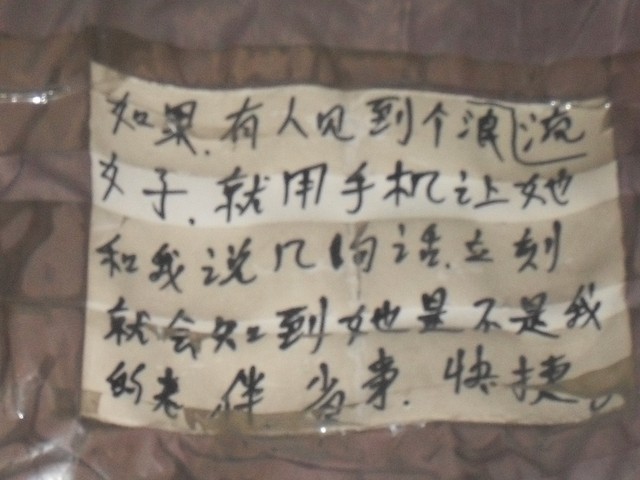 如果.有人见到个浪流
女子.就用手机让她
和我说几句话.立刻
就会知到她是不是我
的老伴当事.快捷。